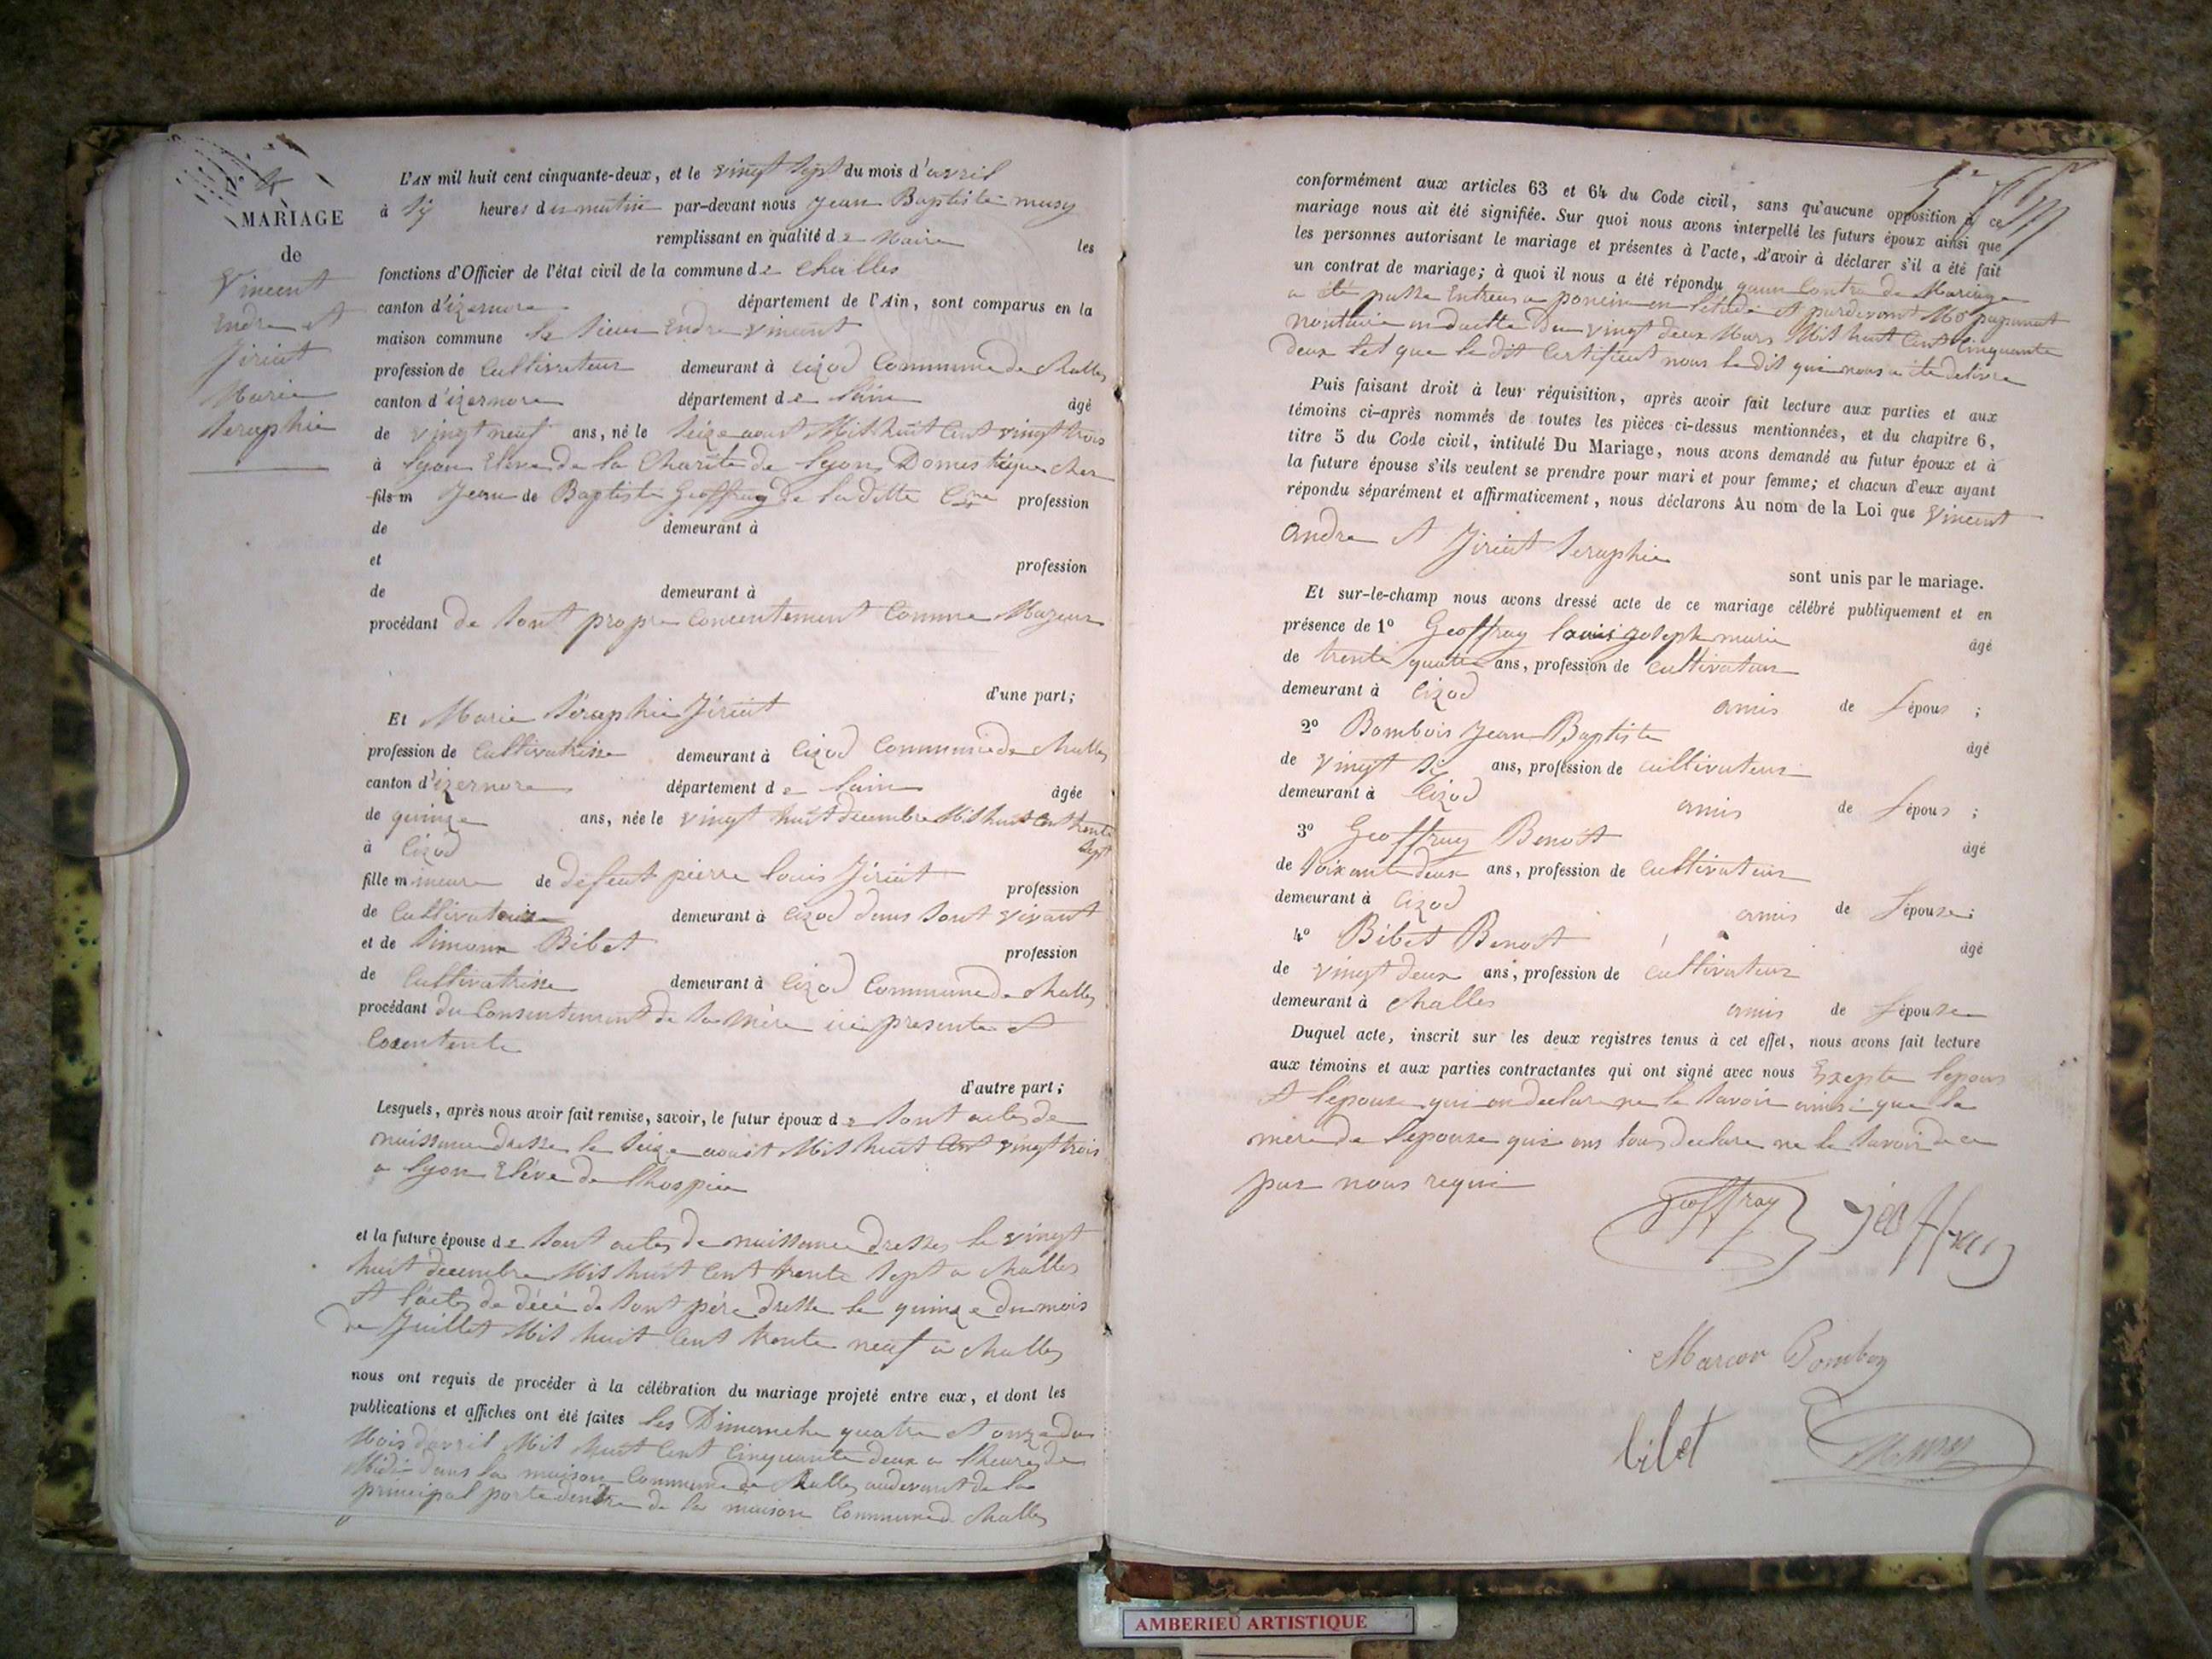 4
MARIAGE
de
Vincent
Endre et
Jirient
Marie
Seraphie
L'AN mil huit cent cinquante-deux, et le vingt sept du mois d'avril
à si heures du matin par-devant nous Jean Baptiste musy
remplissant en qualité de Maire les
fonctions d'Officier de l'état civil de la commune de Challes
canton d'izernore département de l'Ain, sont comparus en la
maison commune le sieur Endre Vincent
profession de Cultivateur demeurant à cizod Commune de Challes
canton d'izernore département de l'ain âgé
de vingt neuf ans, né le seize aout Mil huit Cent vingt trois
à lyon Eleve de la Charite de lyon Domestique cher
fils m Jean de Baptiste Geoffray de la ditte profession
de demeurant à
et profession
de demeurant à
procédant de sont propre concentement Comme Majeur
d'une part;
Et Marie Séraphie Jirient
profession de Cultivatrisse demeurant à Cizod Commune de Challes
canton d'izernore département de lain âgée
de quinze ans, née le vingt huit decembre Mil huit Cent trente
sept
à Cizod
fille mineure de defeut pierre louis Jirient profession
de Cultivateur demeurant à Cizod dens sont vivant
et de Simone Bibet profession
de Cultivatrisse demeurant à Cizod Commune de Challes
procédant du Consentement de sa Mère ici presente et
d'autre part;
Lesquels, après nous avoir fait remise, savoir, le futur époux de sont actes de
naissance dresse le seize aouit Mil huit Cent vingt trois
a lyon Elève de lhospice
et la future épouse de sont actes de naissance dresses le vingt
huit decembre Mil huit Cent trente sept a Challes
et l'actes de décé de sont père dresse le quinze du mois
de Juillet Mil huit Cent trente neuf a Challes
nous ont requis de procéder à la célébration du mariage projeté entre eux, et dont les
publications et affiches ont été faites les Dimanche quatre et onze du
Mois d'avril Mil huit Cent Cinquante deux a lheure de
Midi dans la maison Commune de Challes audevant de la
principal porte dentre de la maison Commune d Challes
conformément aux articles 63 et 64 du Code civil, sans qu'aucune opposition à ce
mariage nous ait été signifiée. Sur quoi nous avons interpellé les futurs époux ainsi que
les personnes autorisant le mariage et présentes à l'acte, d'avoir à déclarer s'il a été fait
un contrat de mariage; à quoi il nous a été répondu Contra de Mariage
a été passe Entreus a poncin en létude et pardevant
nontaire en datte du vingt deux Mars Mil huit Cent Cinquante
deux tel que le dit Certificat nous le dit qui nous a ete delivre
Puis faisant droit à leur réquisition, après avoir fait lecture aux parties et aux
témoins ci-après nommés de toutes les pièces ci-dessus mentionnées, et du chapitre 6,
titre 5 du Code civil, intitulé Du Mariage, nous avons demandé au futur époux et à
la future épouse s'ils veulent se prendre pour mari et pour femme; et chacun d'eux ayant
répondu séparément et affirmativement, nous déclarons Au nom de la Loi que Vincent
andre et Jirient Seraphie
sont unis par le mariage.
Et sur-le-champ nous avons dressé acte de ce mariage célébré publiquement et en
présence de 1° Geoffray louis joseph marie âgé
de trente quatre ans, profession de cultivateur
demeurant à Cizod amis de l'épous ;
2° Bombois Jean Baptiste âgé
de vingt si ans, profession de cultivateur
demeurant à Cizod amis de l'épous ;
3° Geoffray Benoit âgé
de soixante deux ans, profession de Cultivateur
demeurant à Cizod amis de l'épouse;
4° Bibet Benoit âgé
de vingt deux ans, profession de cultivateur
demeurant à Challes amis de l'épouse
Duquel acte, inscrit sur les deux registres tenus à cet effet, nous avons fait lecture
aux témoins et aux parties contractantes qui ont signé avec nous Exepte lepous
et lepouse qui on declare ne le savoir ainsi que la
mere de lepouse qui ons tous declare ne le savoir de ce
par nous requi
Geoffray geoffray
Bomboy
bibet Musy
AMBERIEU ARTISTIQUE